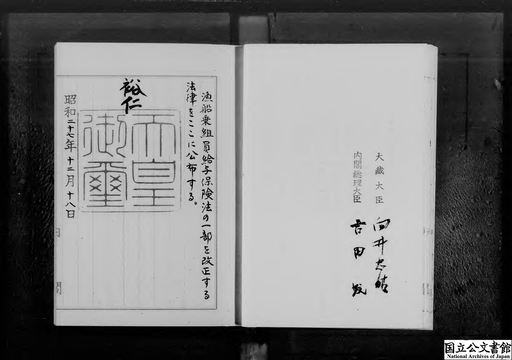 漁船乗組員給与保険法の一部を改正する
法律をここに公布する。
裕仁
天皇
御璽
昭和二十七年十二月十八日
大蔵大臣 向井忠晴
内閣総理大臣 吉田茂
国立公文書館
National Archives of Japan